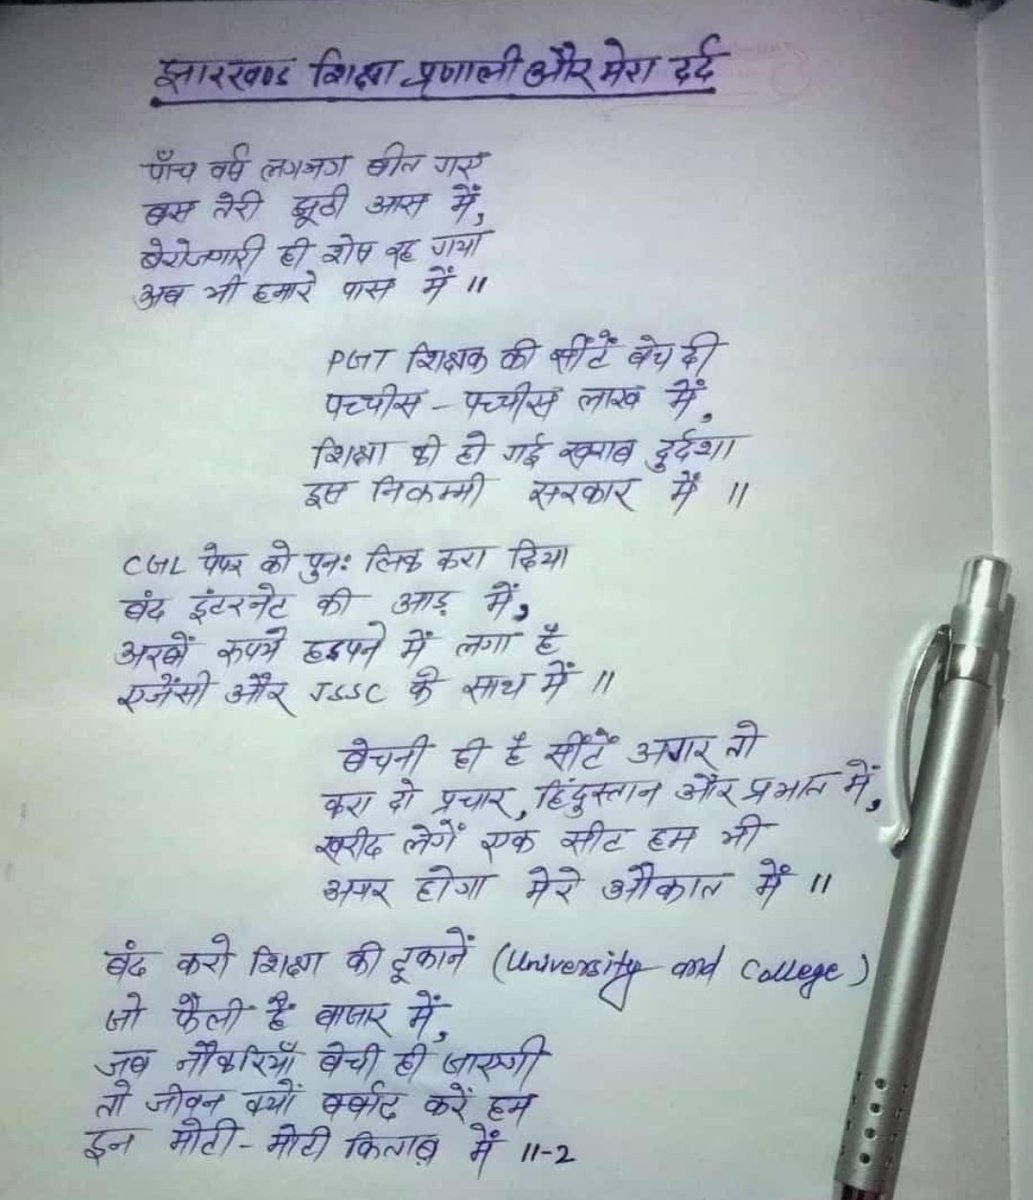 झारखण्ड शिक्षा प्रणाली और मेरा दर्द
पाँच वर्ष लगभग बीत गए
बस तेरी झूठी आस में,
बेरोजगारी ही शेष रह गया
अब भी हमारे पास में ॥
PGT शिक्षक की सीटें बेच दी
पच्चीस - पच्चीस लाख में,
शिक्षा की हो गई खराब दुर्दशा
इस निकम्मी सरकार में ॥
CGL पेपर को पुनः लिक करा दिया
बंद इंटरनेट की आड़ में,
अरबों रूपये हड़पने में लगा है
एजेंसी और JSSC के साथ में ॥
बेचनी ही है सीटें अगर तो
करा दो प्रचार, हिंदुस्तान और प्रभात में,
खरीद लेगें एक सीट हम भी
अगर होगा मेरे औकात में ॥
बंद करो शिक्षा की दूकानें (University and College)
जो फैली हैं बाजार में,
जब नौकरियाँ बेची ही जाएगी
तो जीवन क्यों बर्बाद करें हम
इन मोटी - मोटी किताब में ॥-2